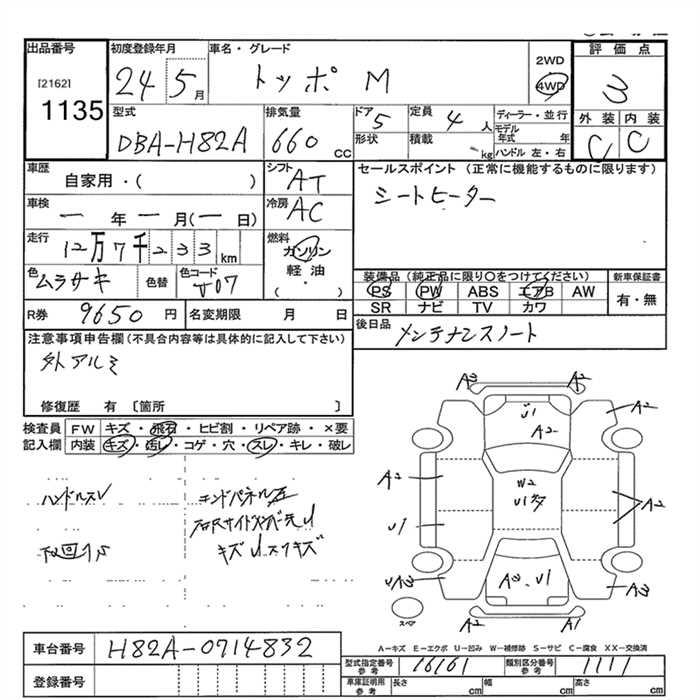 出品番号
[2162]
1135
初度登録年月
24 5月
車名・グレード
トッポ M
2WD
4WD
評価点
3
外装 内装
C C
型式
DBA-H82A
排気量
660 CC
ドア 5
形状
定員 4 人
積載 kg
ディーラー・並行
モデル年式 年
ハンドル 左・右
車歴
自家用・( )
シフト AT
車検
一 年 一 月(一 日)
冷房 AC
走行
12万7千233 km
燃料
ガソリン
軽油
( )
色 ムラサキ
色替
色コード
R券 9650 円
名変期限 月 日
セールスポイント (正常に機能するものに限ります)
シートヒーター
装備品(純正品に限り○をつけてください)
PS PW ABS エアB AW
SR ナビ TV カワ
新車保証書
有・無
後日品
メンテナンスノート
注意事項申告欄(不具合内容等は具体的に記入して下さい)
外アルミ
修復歴 有 〔箇所 〕
検査員記入欄
FW キズ・飛石・ヒビ割・リペア跡・×要
内装 キズ・汚レ・コゲ・穴・スレ・キレ・破レ
ハンドルスレ
エンドパネル左
キズ
A3
U1
A2
A2
A2
W2
A2
U1
A3
A3
A2
A1
スペア
A−キズ E−エクボ U−凹み W−補修跡 S−サビ C−腐食 XX−交換済
車台番号 H82A-0714832
登録番号
型式指定番号 参考 16161
類別区分番号 参考 1111
車庫証明用 参考 長さ cm 幅 cm 高さ cm